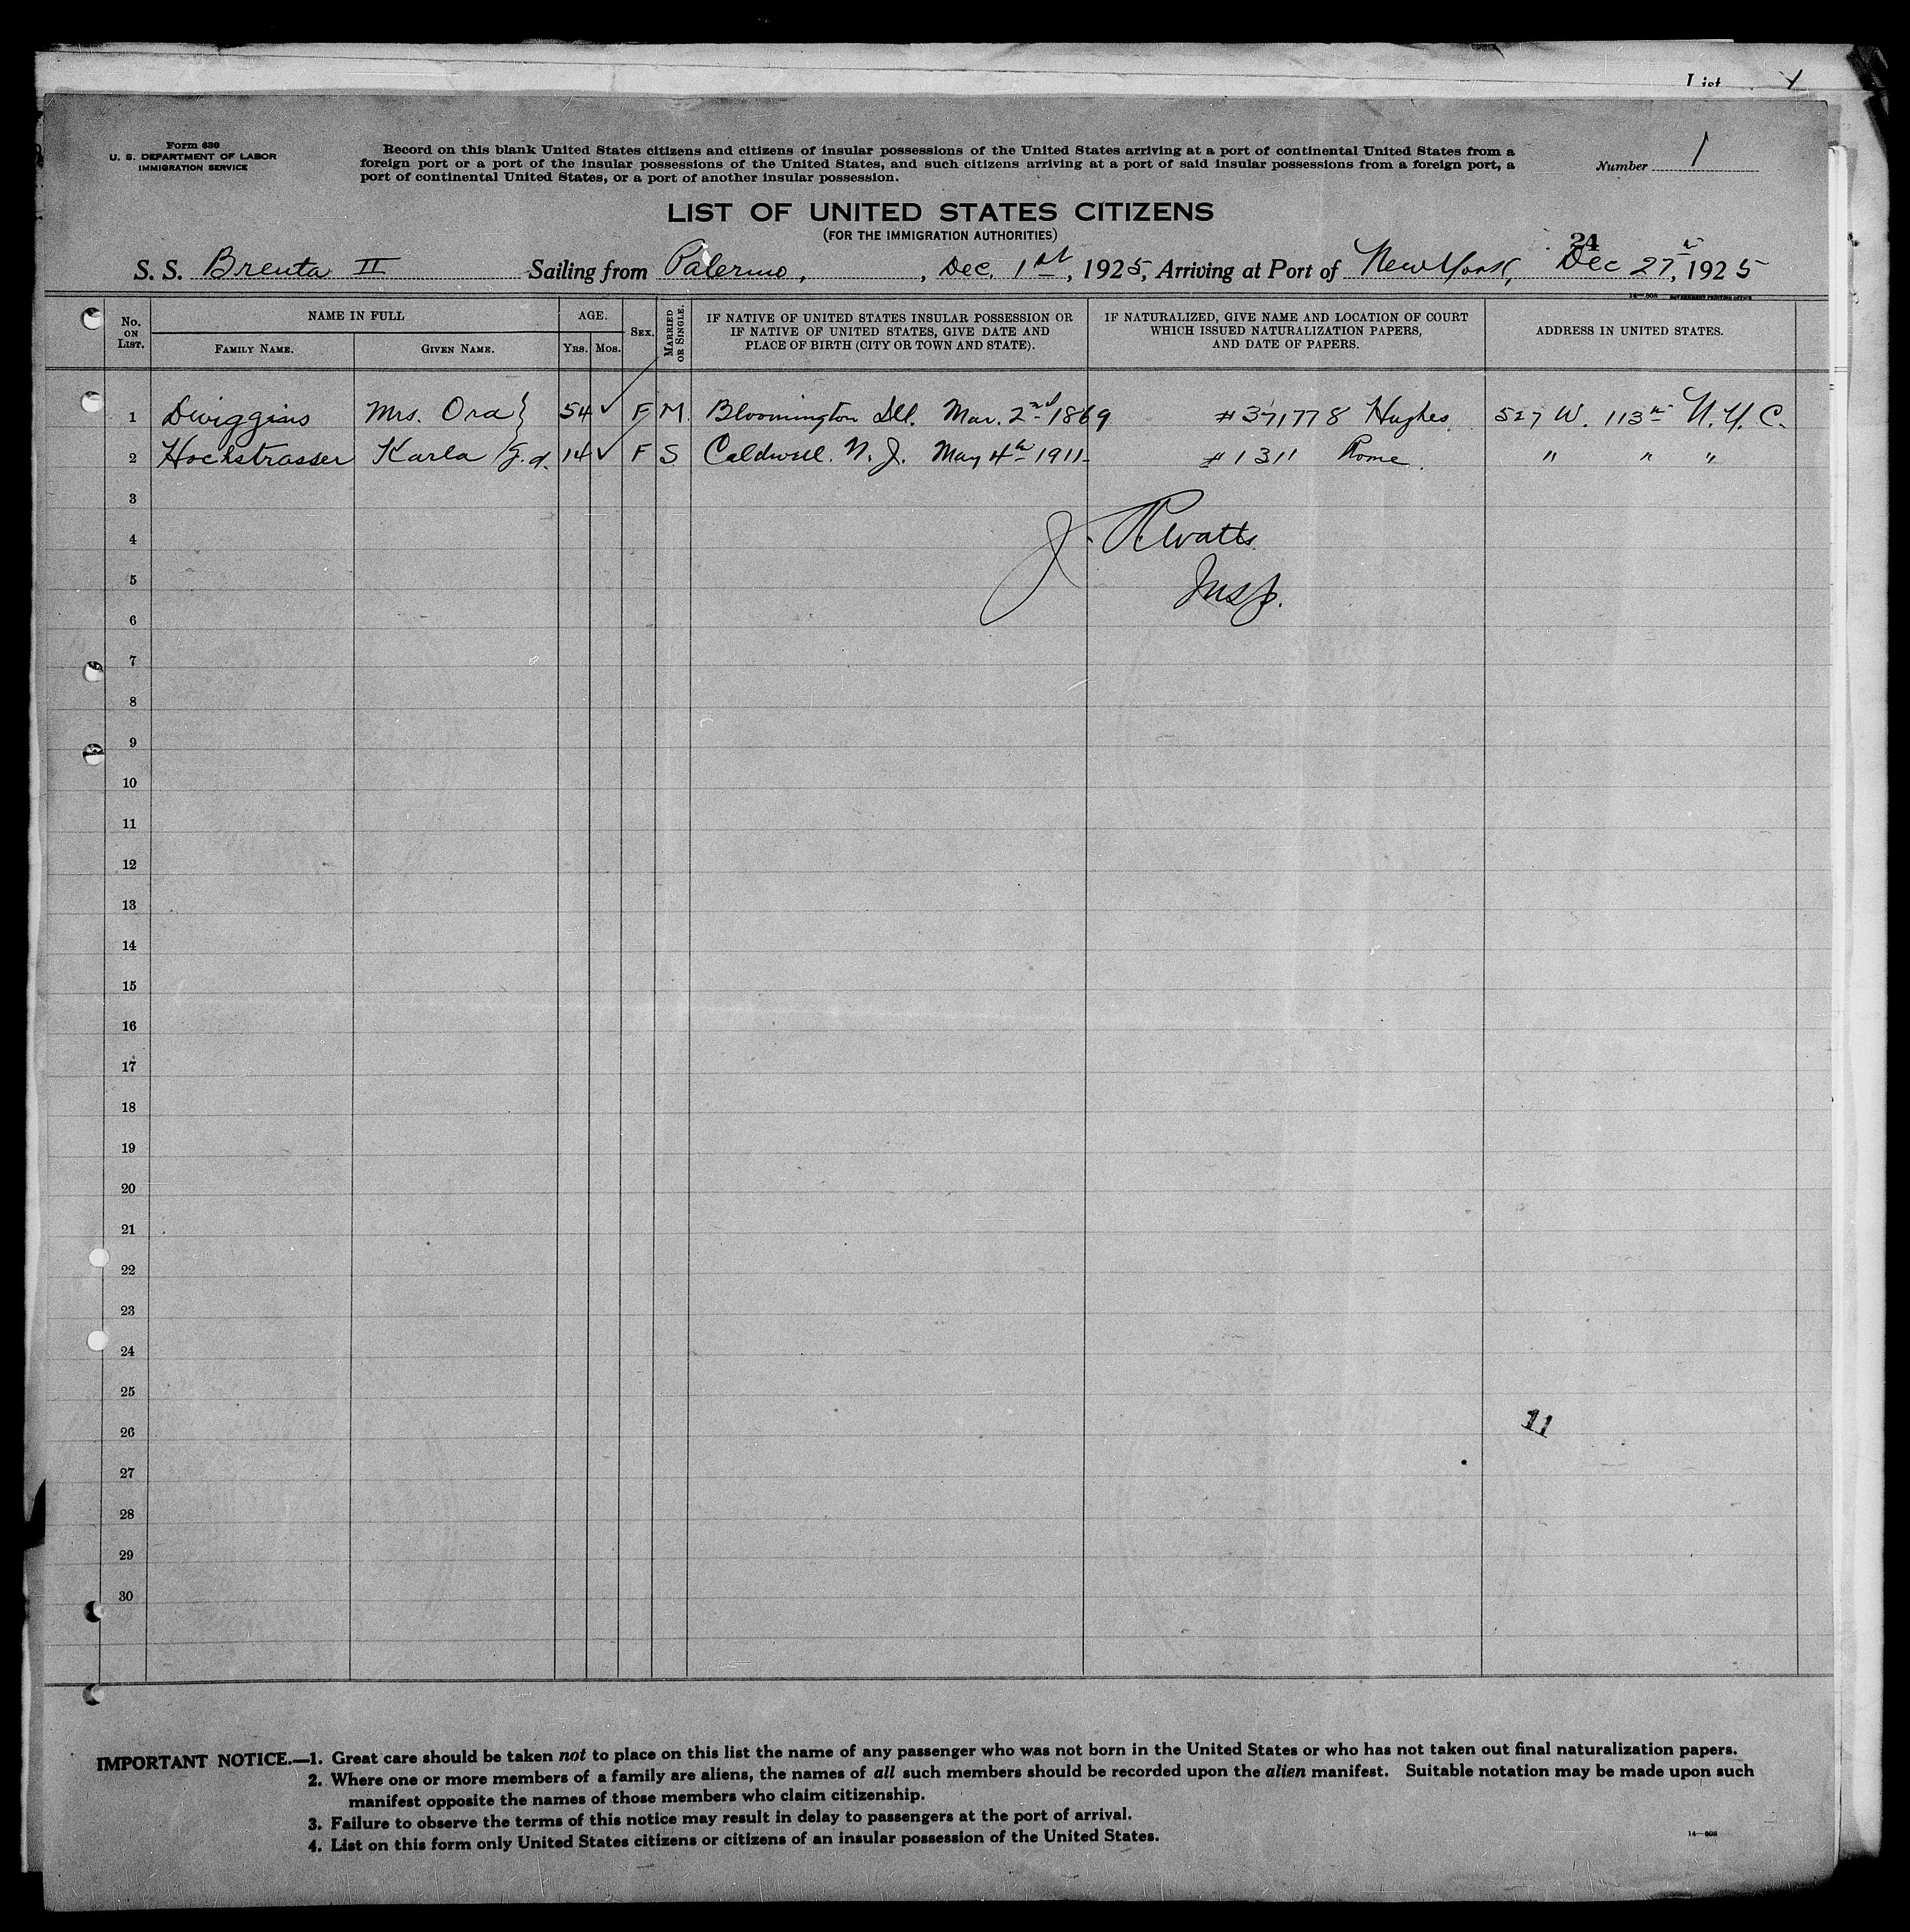 List 1
Form 630
U. S. DEPARTMENT OF LABOR
IMMIGRATION SERVICE
Record on this blank United States citizens and citizens of insular possessions of the United States arriving at a port of continental United States from a
foreign port or a port of the insular possessions of the United States, and such citizens arriving at a port of said insular possessions from a foreign port, a
port of continental United States, or a port of another insular possession.
Number 1
LIST OF UNITED STATES CITIZENS
(FOR THE IMMIGRATION AUTHORITIES)
24
S. S. Brenta II Sailing from Palermo, , Dec. 1st, 1925, Arriving at Port of New York, Dec 27th, 1925
14—808 GOVERNMENT PRINTING OFFICE
No. ON LIST. NAME IN FULL AGE. SEX. MARRIED OR SINGLE. IF NATIVE OF UNITED STATES INSULAR POSSESSION OR IF NATIVE OF UNITED STATES, GIVE DATE AND PLACE OF BIRTH (CITY OR TOWN AND STATE). IF NATURALIZED, GIVE NAME AND LOCATION OF COURT WHICH ISSUED NATURALIZATION PAPERS, AND DATE OF PAPERS. ADDRESS IN UNITED STATES.
FAMILY NAME. GIVEN NAME. YRS. MOS.
1 Dwiggins Mrs. Ora } 54 ✓ F M. Bloomington Ill. Mar. 2nd 1869 #371778 Hughes. 527 W. 113th N. Y. C.
2 Hochstrasser Karla g. d. 14 ✓ F S Caldwell. N. J. May 4th 1911 #1311 Rome. " " "
3
4 J. R Watts
5 Insp.
6
7
8
9
10
11
12
13
14
15
16
17
18
19
20
21
22
23
24
25
26 11
27
28
29
30
IMPORTANT NOTICE.—1. Great care should be taken not to place on this list the name of any passenger who was not born in the United States or who has not taken out final naturalization papers.
2. Where one or more members of a family are aliens, the names of all such members should be recorded upon the alien manifest. Suitable notation may be made upon such
manifest opposite the names of those members who claim citizenship.
3. Failure to observe the terms of this notice may result in delay to passengers at the port of arrival.
4. List on this form only United States citizens or citizens of an insular possession of the United States.
14—808